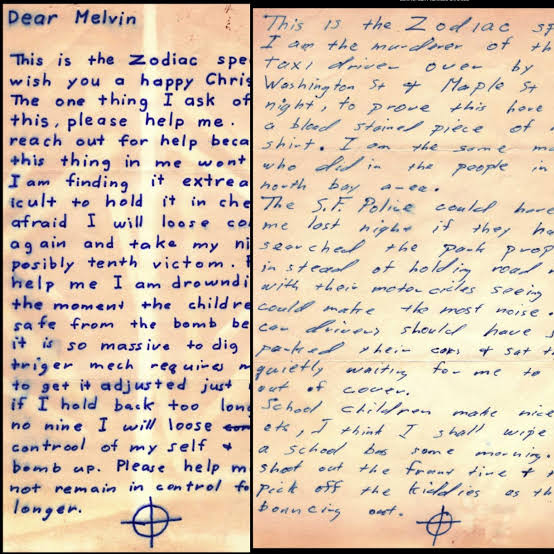 Dear Melvin
This is the Zodiac spe
wish you a happy Chris
The one thing I ask of
this, please help me.
reach out for help beca
this thing in me wont
I am finding it extrea
icult to hold it in che
afraid I will loose co
again and take my ni
posibly tenth victom.
help me I am drowndi
the moment the childre
safe from the bomb be
it is so massive to dig
triger mech requires m
to get it adjusted just
if I hold back too long
no nine I will loose
controol of my self &
bomb up. Please help m
not remain in control fo
longer.
This is the Zodiac sp
I am the murderer of th
taxi driver over by
Washington St & Maple St
night, to prove this here
a blood stained piece of
shirt. I am the same m
who did in the people in
north bay area.
The S.F. Police could have
me last night if they ha
searched the park prop
in stead of holding road
with their motorcicles seeing
could make the most noise.
car drivers should have
parked their cars & sat th
quietly waiting for me to
out of cover.
School children make nice
ets, I think I shall wipe
a school bus some morning.
shoot out the front tire &
pick off the kiddies as th
bouncing out.